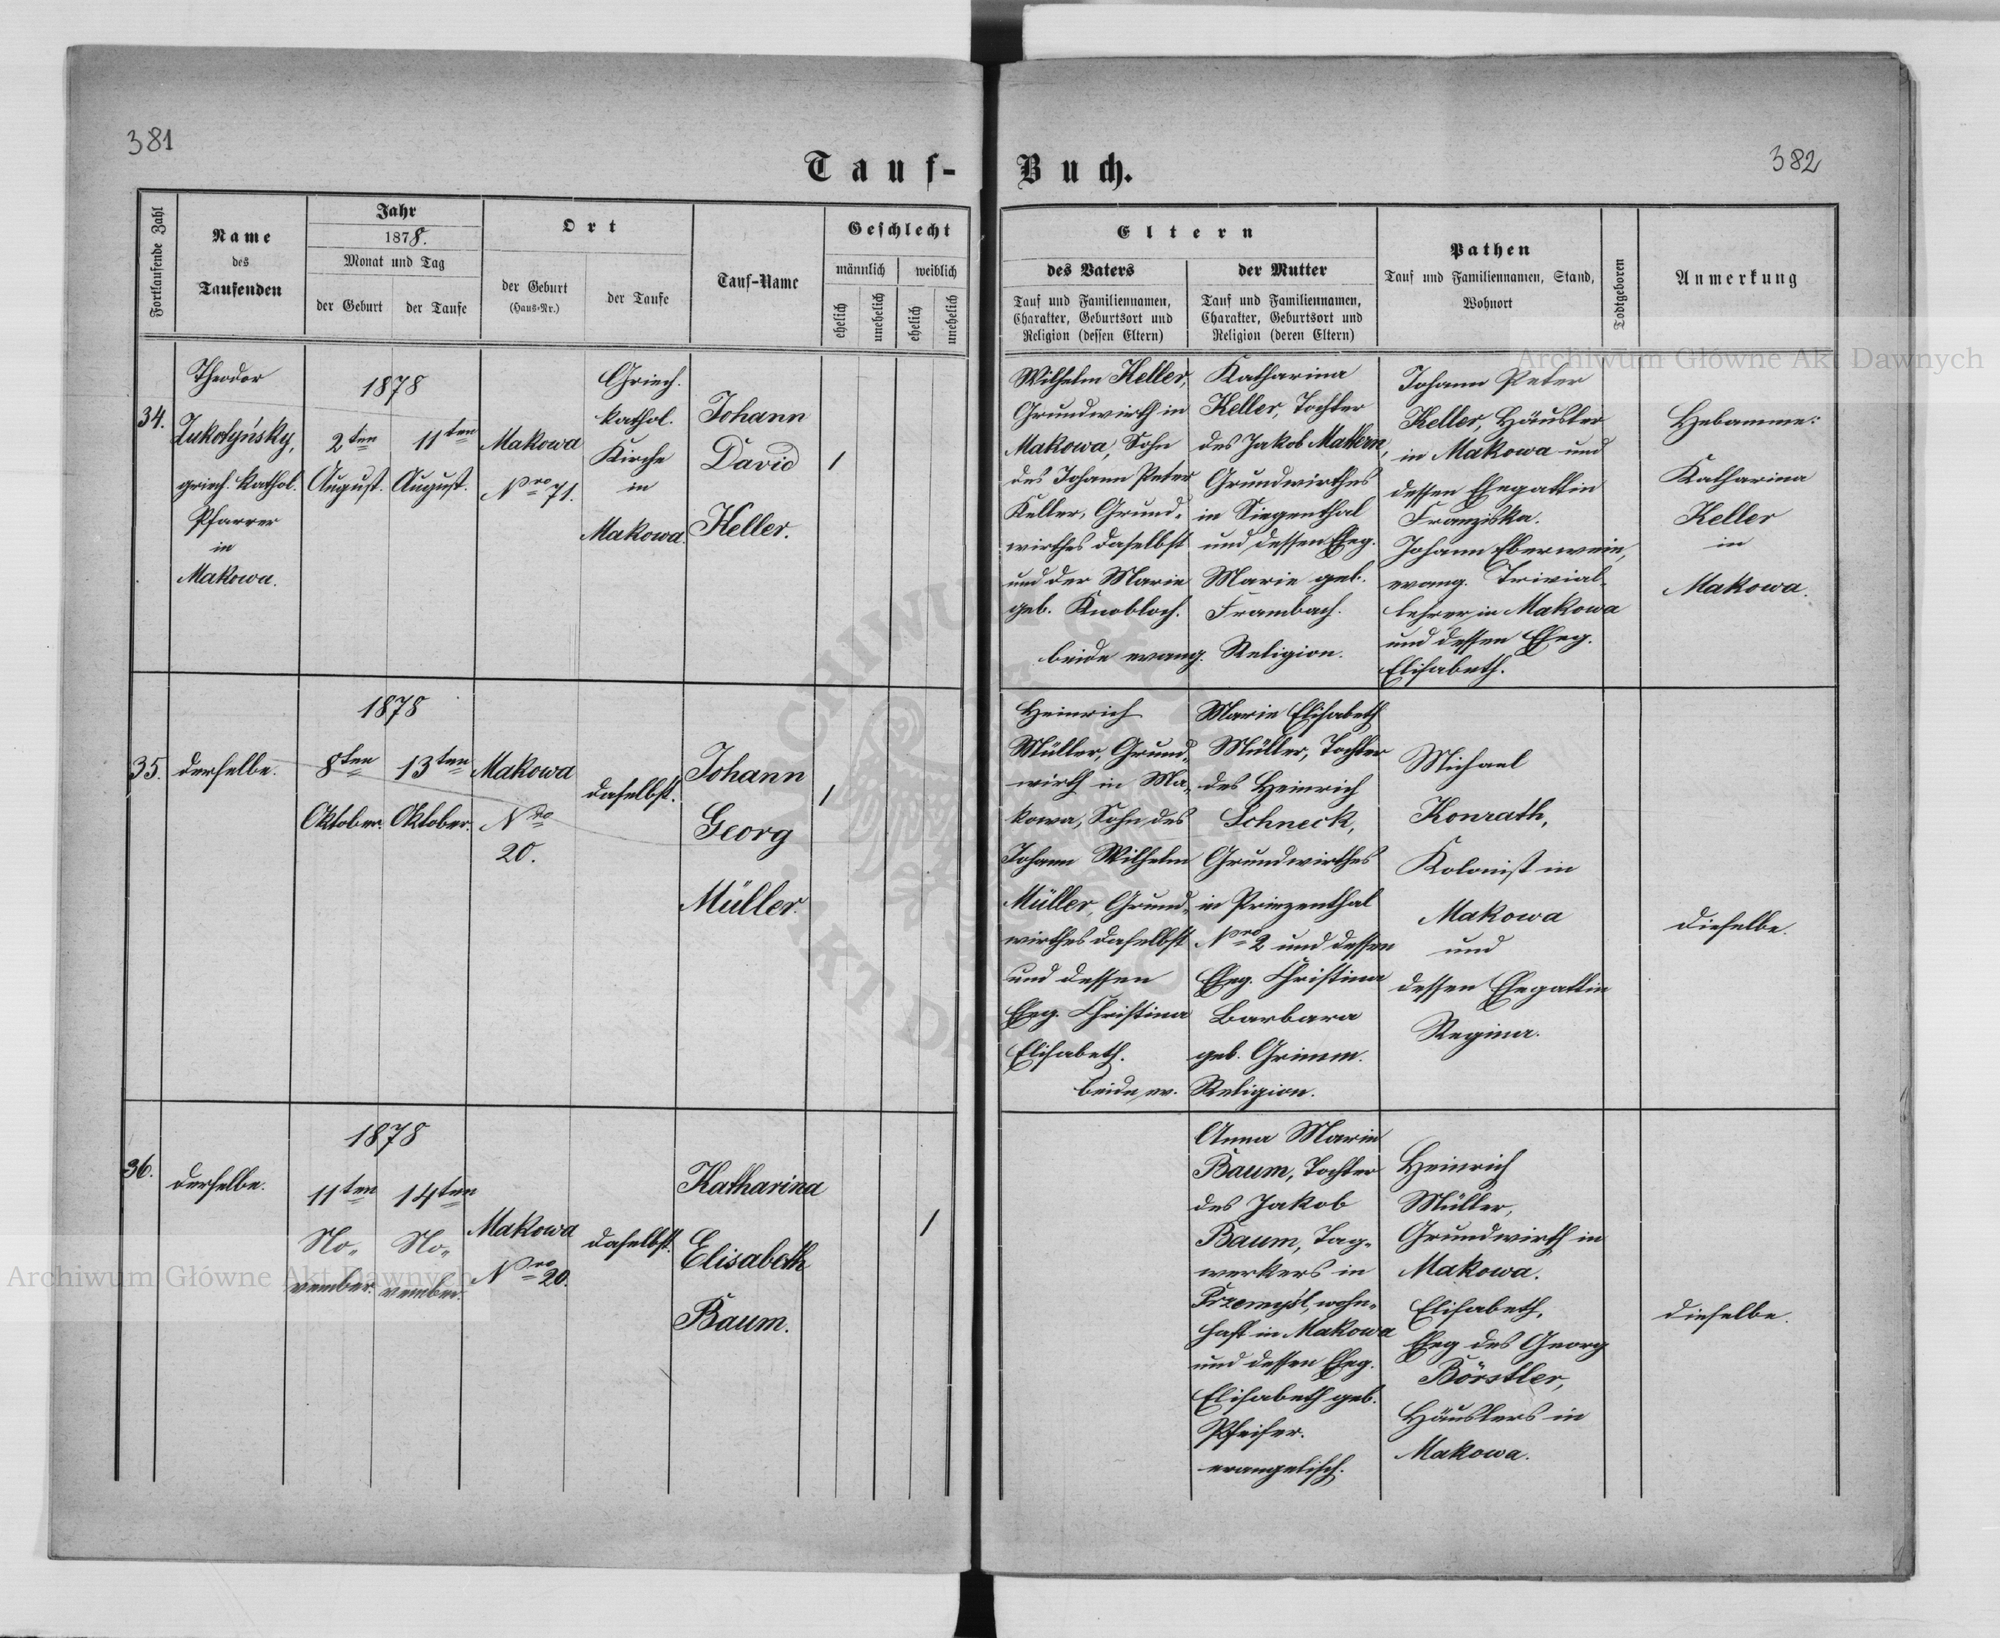 381
382
Tauf-Buch.
Fortlaufende Zahl
Name
des
Taufenden
Jahr
1878.
Monat und Tag
der Geburt
der Taufe
Ort
der Geburt
(Haus-Nr.)
der Taufe
Tauf-Name
Geschlecht
männlich
weiblich
ehelich
unehelich
ehelich
unehelich
Eltern
des Vaters
Tauf und Familiennamen,
Charakter, Geburtsort und
Religion (dessen Eltern)
der Mutter
Tauf und Familiennamen,
Charakter, Geburtsort und
Religion (deren Eltern)
Pathen
Tauf und Familiennamen, Stand,
Wohnort
Todtgeboren
Anmerkung
34.
Theodor
Lukoszynsky,
griech. kathol.
Pfarrer
in
Makowa.
1878
2ten
August.
11ten
August.
Makowa
Nro 71.
Griech.
kathol.
Kirche
in
Makowa.
Johann
David
Keller.
1
Wilhelm Keller,
Grundwirth in
Makowa, Sohn
des Johann Peter
Keller, Grund-
wirthes daselbst
und der Marie
geb. Knobloch.
Katharina
Keller, Tochter
des Jakob Mattern,
Grundwirthes
in Siegenthal
und dessen Eheg.
Marie geb.
Frambach.
beide evang. Religion.
Johann Peter
Keller, Häusler
in Makowa und
dessen Ehegattin
Franziska.
Johann Eberwein,
evang. Trivial-
lehrer in Makowa
und dessen Eheg.
Elisabeth.
Hebamme:
Katharina
Keller
in
Makowa.
35.
derselbe.
1878
8ten
Oktober.
13ten
Oktober.
Makowa
Nro
20.
daselbst.
Johann
Georg
Müller.
1
Heinrich
Müller, Grund-
wirth in Ma-
kowa, Sohn des
Johann Wilhelm
Müller, Grund-
wirthes daselbst
und dessen
Eheg. Christina
Elisabeth.
Marie Elisabeth
Müller, Tochter
des Heinrich
Schneck,
Grundwirthes
in Prinzenthal
Nro 2 und dessen
Eheg. Christina
Barbara
geb. Grimm.
beide ev. Religion.
Michael
Konrath,
Kolonist in
Makowa
und
dessen Ehegattin
Regina.
dieselbe.
36.
derselbe.
1878
11ten
No-
vember.
14ten
No-
vember.
Makowa
Nro 20.
daselbst.
Katharina
Elisabeth
Baum.
1
Anna Marie
Baum, Tochter
des Jakob
Baum, Tag-
werkers in
Przemyśl, wohn-
haft in Makowa
und dessen Eheg.
Elisabeth geb.
Pfeifer.
evangelisch.
Heinrich
Müller,
Grundwirth in
Makowa.
Elisabeth,
Eheg des Georg
Börstler,
Häuslers in
Makowa.
dieselbe.
Archiwum Główne Akt Dawnych
Archiwum Główne Akt Dawnych